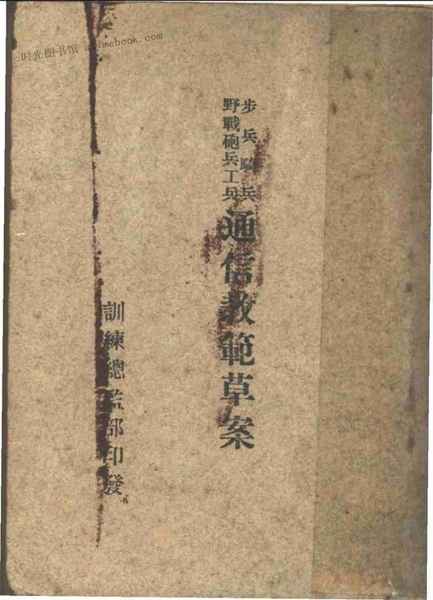 步兵騎兵
野戰砲兵工兵
通信教範草案
訓練總監部印發
时光图书馆